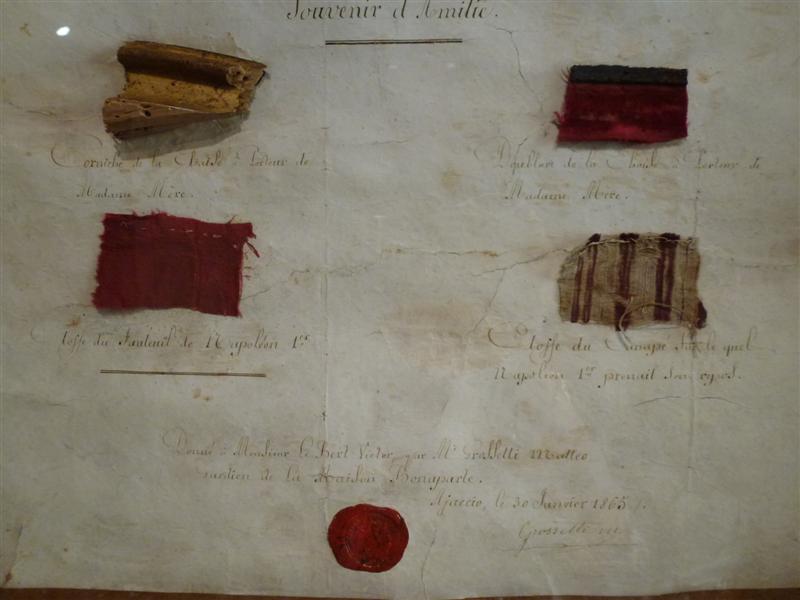 Souvenir d'Amitié.
Corniche de la Chaise à Porteur de
Madame Mère.
de la Chaise à Porteur de
Madame Mère.
Etoffe du Fauteuil de Napoléon 1er
Etoffe du Canapé sur le quel
Napoléon 1er prenait son repos.
Donné à Monsieur Le Bert Victor, par Mr Grossetti Matteo
de la Maison Bonaparte.
Ajaccio, le 30 Janvier 1865
Grossetti m